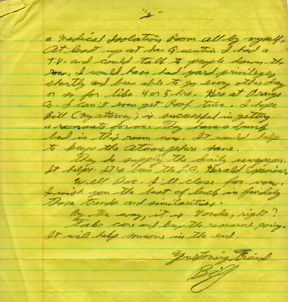 2
a Medical Isolation Room all by myself.
At least up at San Quentin I had a
T.V. and could talk to people down the
row, I would have had yard privileges
shortly and been able to go every other day
or so for like 4 or 5 hrs. Here at Orange
Co. I can't even get Roof time. I hope
Bill (my attorney) is successful in getting
a roommate for me. They have a bunk
bed in this room now. It would help
to keep the Atmosphere sane.
They do supply the daily newspaper.
It helps. It's the L.A. Herald Examiner.
Well I'll close for now.
I wish you the best of luck in finding
those trends and similarities.
By the way, it is Vonda, right?
Take care and keep the research going.
It will help someone in the end.
Your Friend
Bill